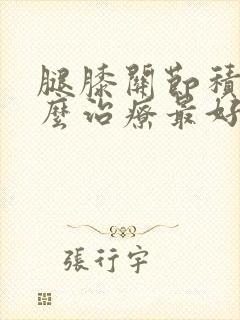 腿膝關節積
麼治療最好
張行宇